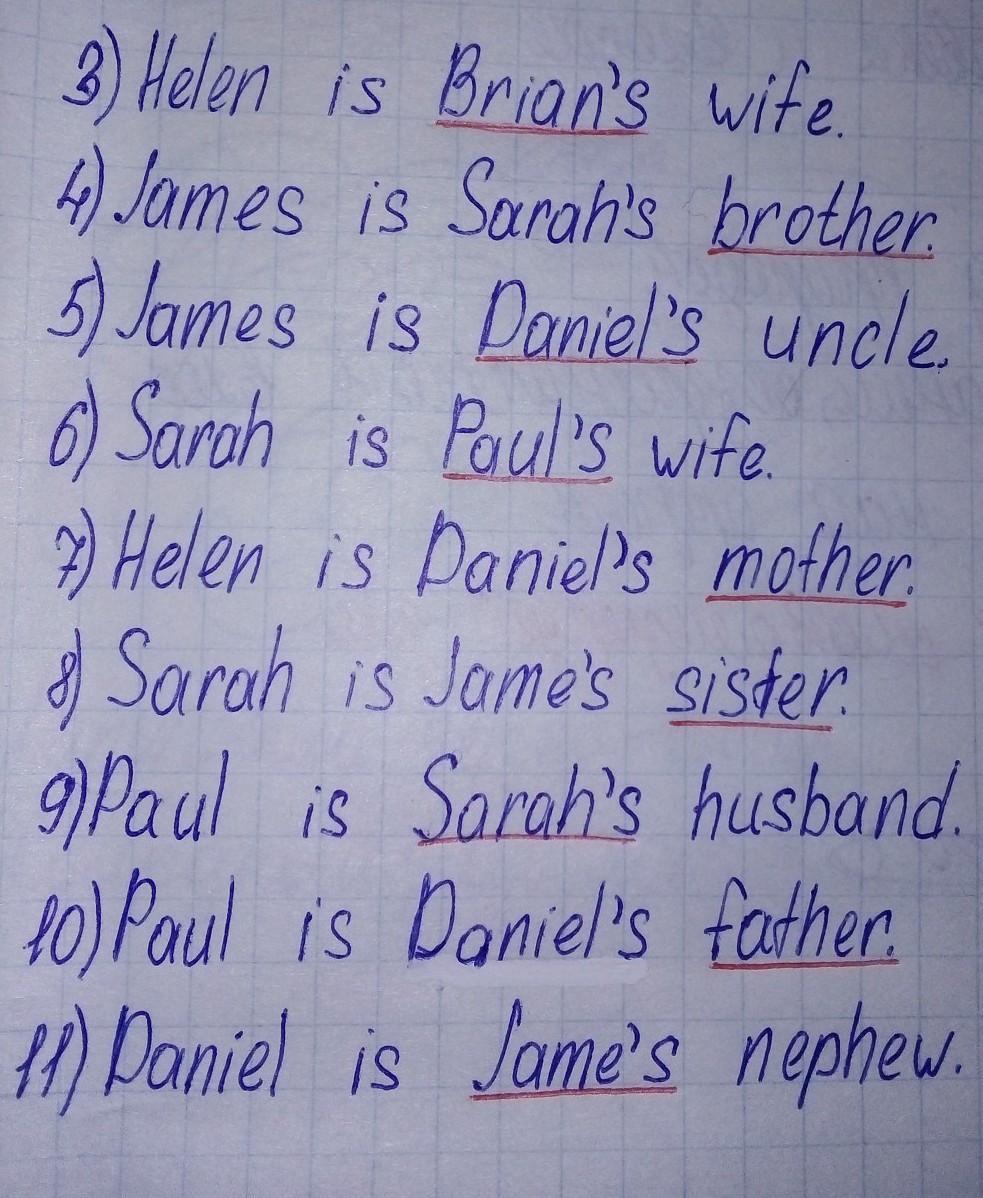 3) Helen is Brian's wife.
4) James is Sarah's brother.
5) James is Daniel's uncle.
6) Sarah is Paul's wife.
7) Helen is Daniel's mother.
8) Sarah is Jame's sister.
9) Paul is Sarah's husband.
10) Paul is Daniel's father.
11) Daniel is Jame's nephew.